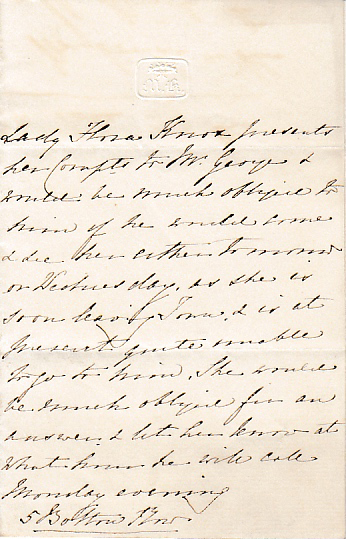 Lady Flora Knox presents
her Compts to Mr. George &
would be much obliged to
him if he would come
& see her either tomorrow
or Wednesday, as she is
soon leaving Town, & is at
present quite unable
to go to him. She would
be much obliged for an
answer, & let her know at
what hour he will call
Monday evening
5 Bolton Row